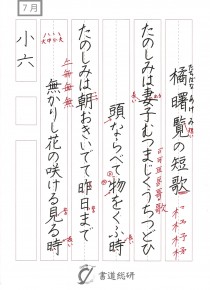 7月
小六
橘曙覧の短歌
たちばなあけみ
たのしみは妻子むつまじくうちつどひ
頭ならべて物をくふ時
たのしみは朝おきいでて昨日まで
無かりし花の咲ける見る時
書道総研